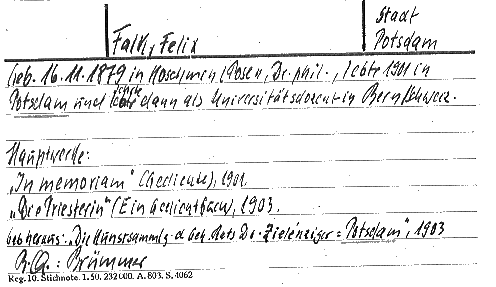 Stadt
Falk, Felix Potsdam
geb. 16.11.1879 in Moschin (Posen), Dr. phil., lebte 1901 in
Potsdam und lehrte dann als Universitätsdozent in Bern/Schweiz.
Hauptwerke:
„In memoriam" (Gedichte), 1901.
„Die Priesterin" (Ein Gedichtbuch), 1903.
gab heraus: „Die Kunstsammlg. d. Geh. Rats Dr. Zielenziger = Potsdam", 1903
B.Q.: Brümmer
Reg. 10. Stichnote. 1. 50. 232 000. A. 803. S. 4062